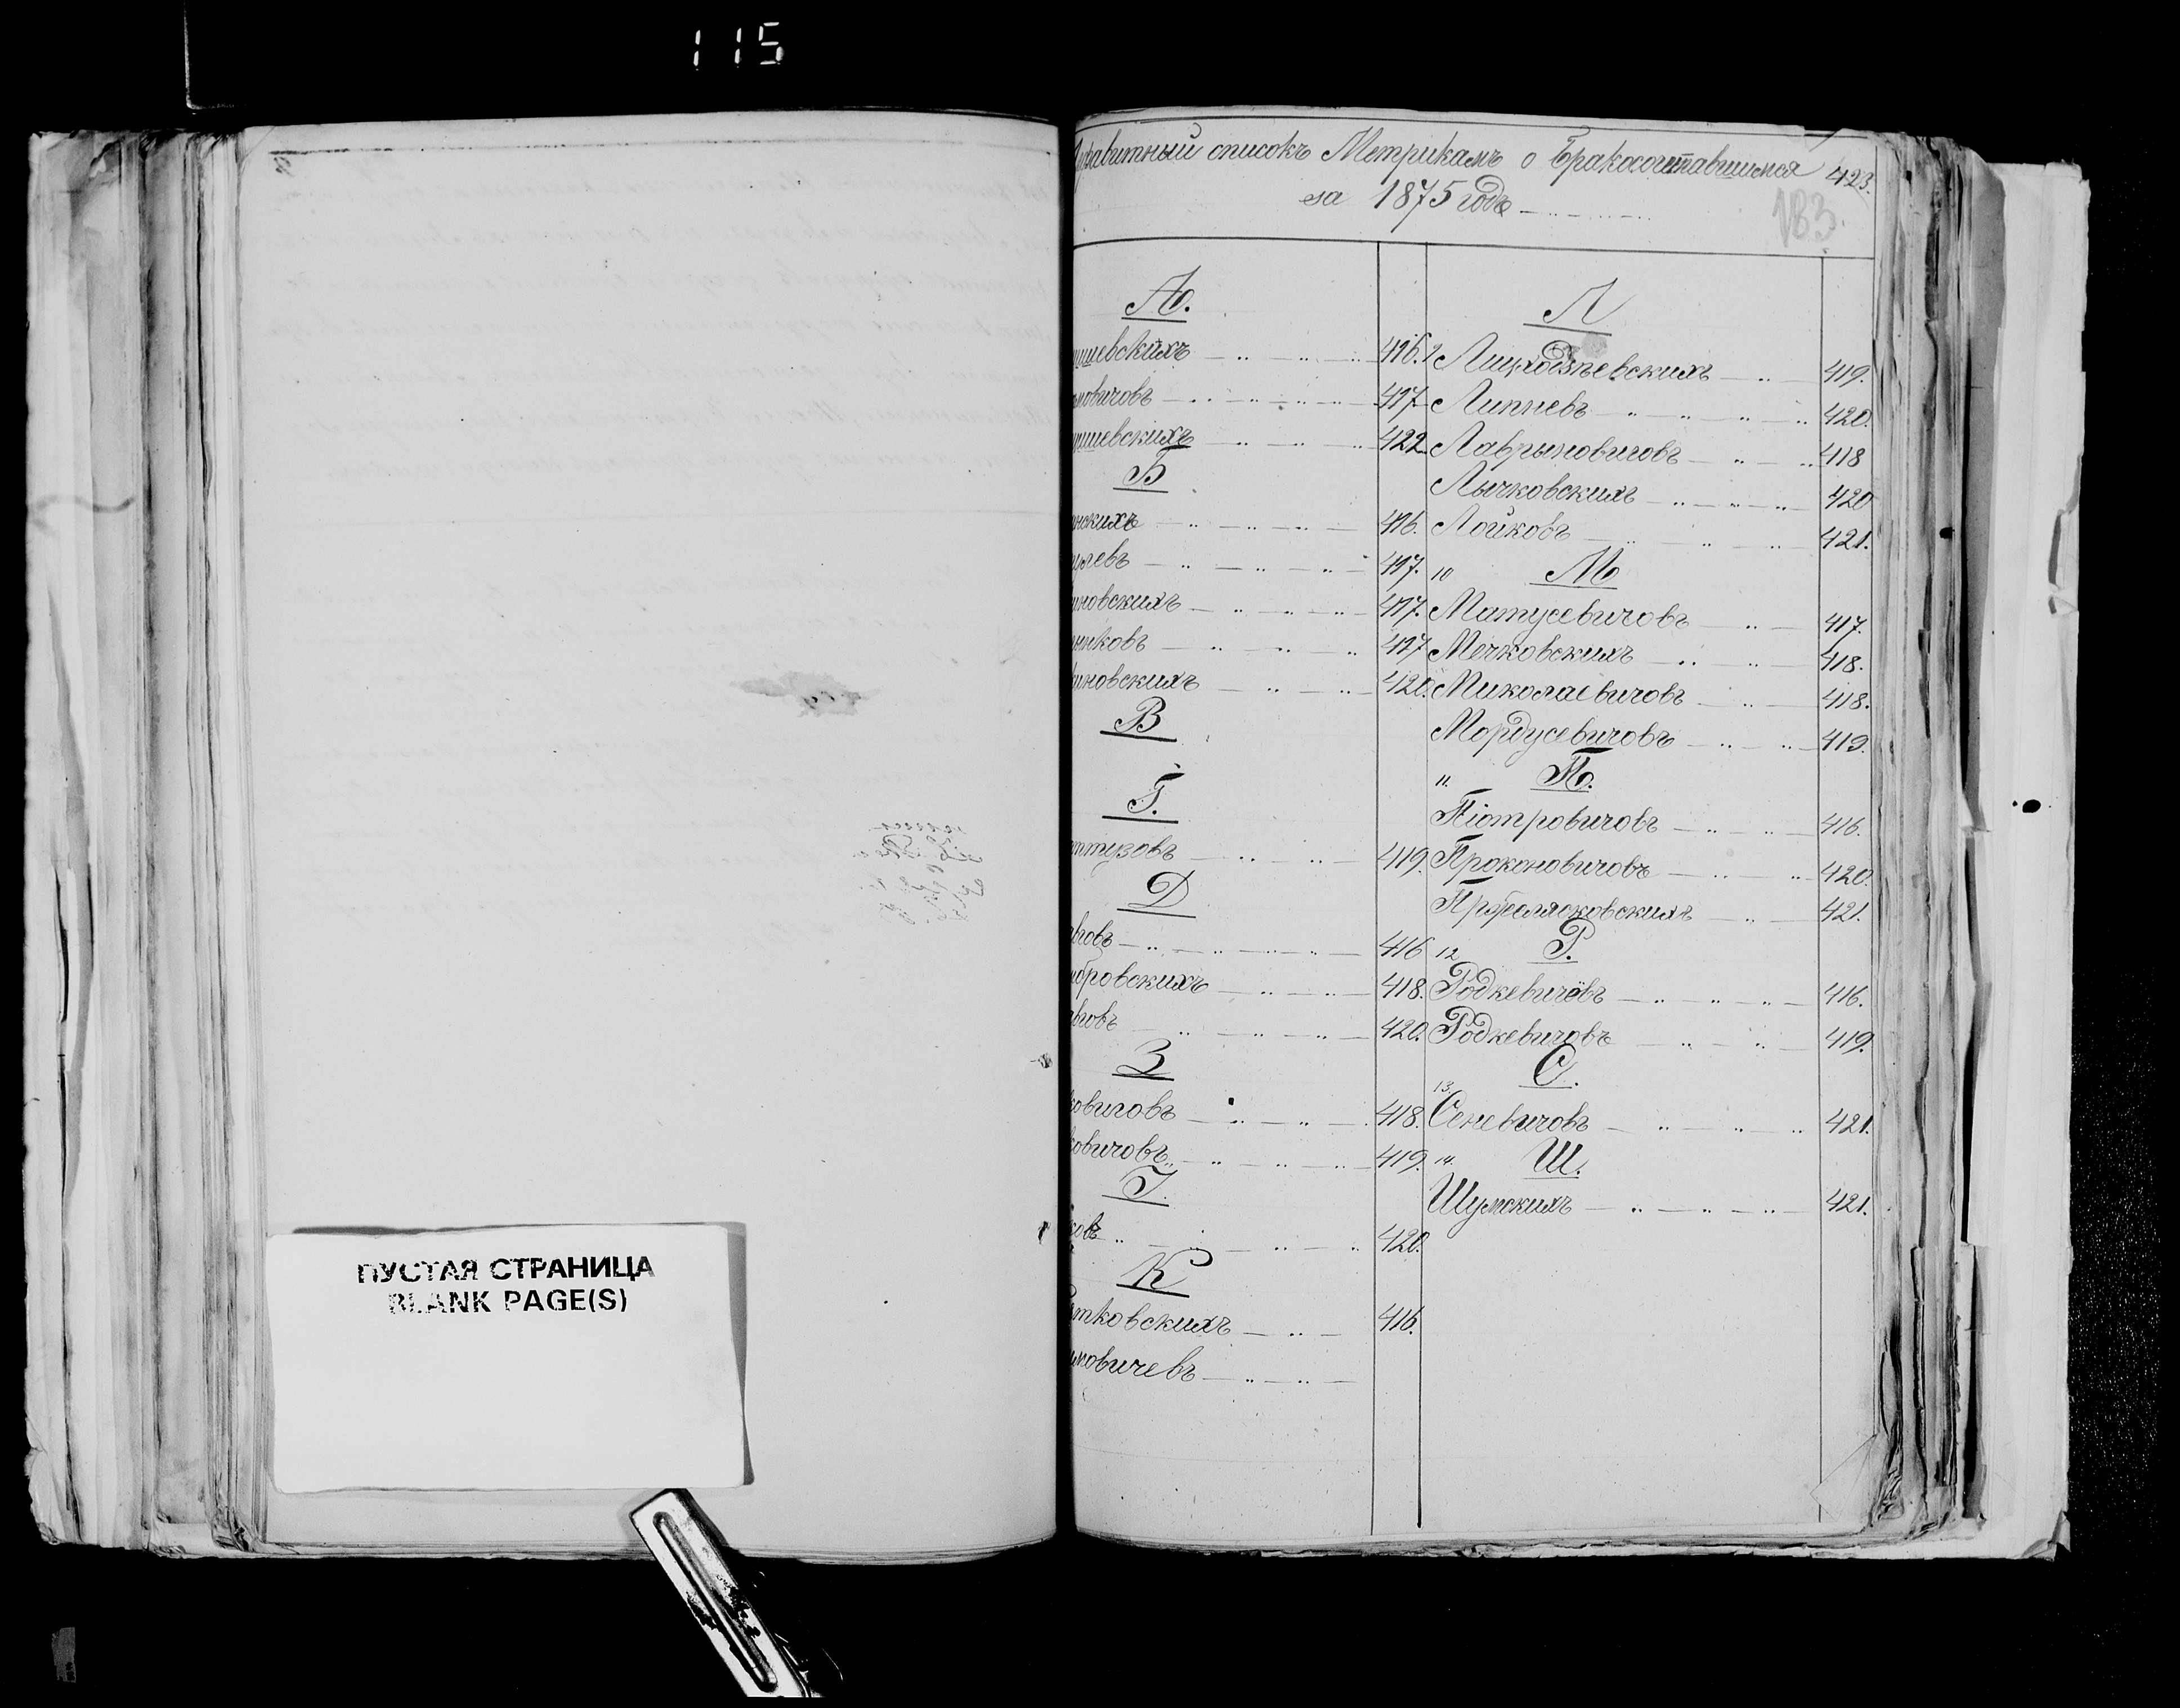 115
ПУСТАЯ СТРАНИЦА
BLANK PAGE(S)
списокъ Метрикамъ о Бракосочетавшимся 423.
за 1875 годъ
183.
А.
шевскихъ 416.
мовичовъ 417
шевскихъ 422
Б
нскихъ 416.
левъ 417.
новскихъ 417.
никовъ 417
иновскихъ 420.
В
Г.
ттузовъ 419.
Д
вговъ 416
бровскихъ 418.
вговъ 420.
З
ковичовъ 418.
ковичовъ 419.
І.
ковъ 420.
К
тковскихъ 416.
мовичевъ
Л
Лиходзѣевскихъ 419.
Липневъ 420.
Лаврыновичовъ 418
Лычковскихъ 420
Лойковъ 421.
10 М
Матусевичовъ 417.
Мечковскихъ 418.
Миколаевичовъ 418.
Мордусевичовъ 419.
11. П.
Піотровичовъ 416.
Проконовичовъ 420.
421.
12 Р.
Родкевичовъ 416.
Родкевичовъ 419.
13. С.
Сеневичовъ 421.
14. Ш.
Шумскихъ 421.